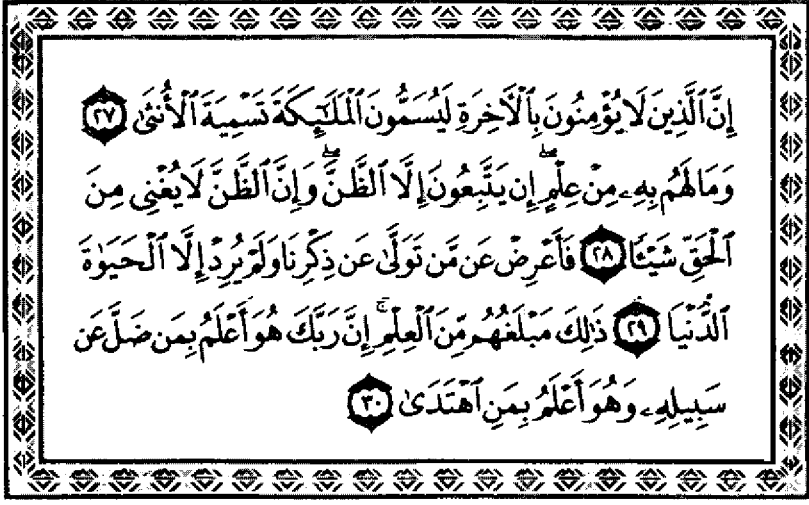 إِنَّ ٱلَّذِينَ لَا يُؤْمِنُونَ بِٱلْـَٔاخِرَةِ لَيُسَمُّونَ ٱلْمَلَـٰٓئِكَةَ تَسْمِيَةَ ٱلْأُنثَىٰ ٢٧
وَمَا لَهُم بِهِۦ مِنْ عِلْمٍ ۖ إِن يَتَّبِعُونَ إِلَّا ٱلظَّنَّ ۖ وَإِنَّ ٱلظَّنَّ لَا يُغْنِى مِنَ
ٱلْحَقِّ شَيْـًٔا ٢٨ فَأَعْرِضْ عَن مَّن تَوَلَّىٰ عَن ذِكْرِنَا وَلَمْ يُرِدْ إِلَّا ٱلْحَيَوٰةَ
ٱلدُّنْيَا ٢٩ ذَٰلِكَ مَبْلَغُهُم مِّنَ ٱلْعِلْمِ ۚ إِنَّ رَبَّكَ هُوَ أَعْلَمُ بِمَن ضَلَّ عَن
سَبِيلِهِۦ وَهُوَ أَعْلَمُ بِمَنِ ٱهْتَدَىٰ ٣٠